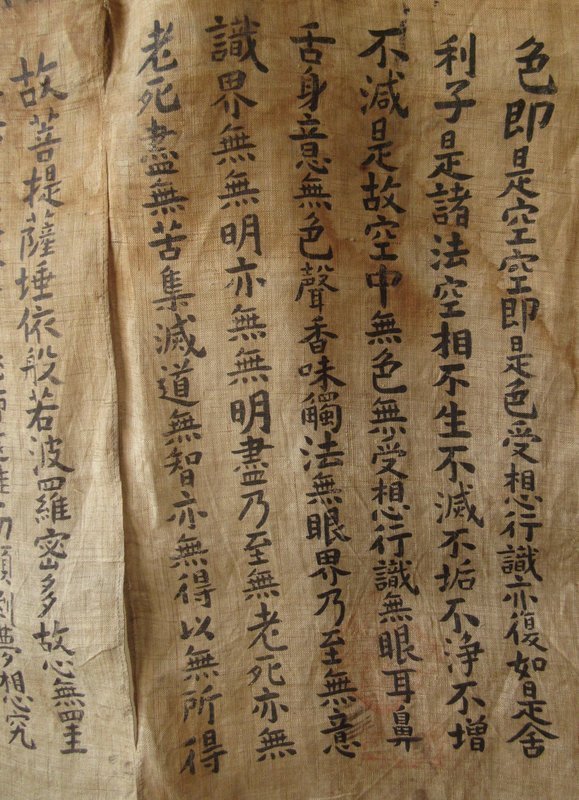 色即是空空即是色受想行識亦復如是舍
利子是諸法空相不生不滅不垢不淨不增
不減是故空中無色無受想行識無眼耳鼻
舌身意無色聲香味觸法無眼界乃至無意
識界無無明亦無無明盡乃至無老死亦無
老死盡無苦集滅道無智亦無得以無所得
故菩提薩埵依般若波羅密多故心無罣
切顛倒夢想究